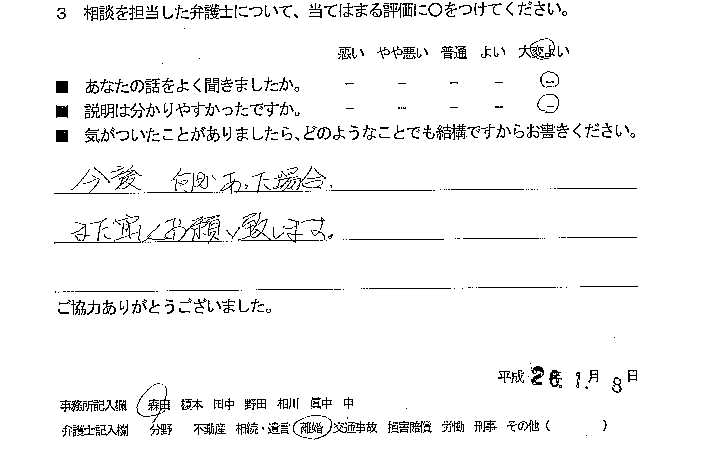 3 相談を担当した弁護士について、当てはまる評価に○をつけてください。
悪い やや悪い 普通 よい 大変よい
■ あなたの話をよく聞きましたか。 － － － － －
■ 説明は分かりやすかったですか。 － － － － －
■ 気がついたことがありましたら、どのようなことでも結構ですからお書きください。
今後 何かあった場合、
また宜しくお願い致します。
ご協力ありがとうございました。
平成 26. 1. 月 8 日
事務所記入欄 森田 榎本 田中 野田 相川 眞中 中
弁護士記入欄 分野 不動産 相続・遺言 離婚 交通事故 損害賠償 労働 刑事 その他（ ）